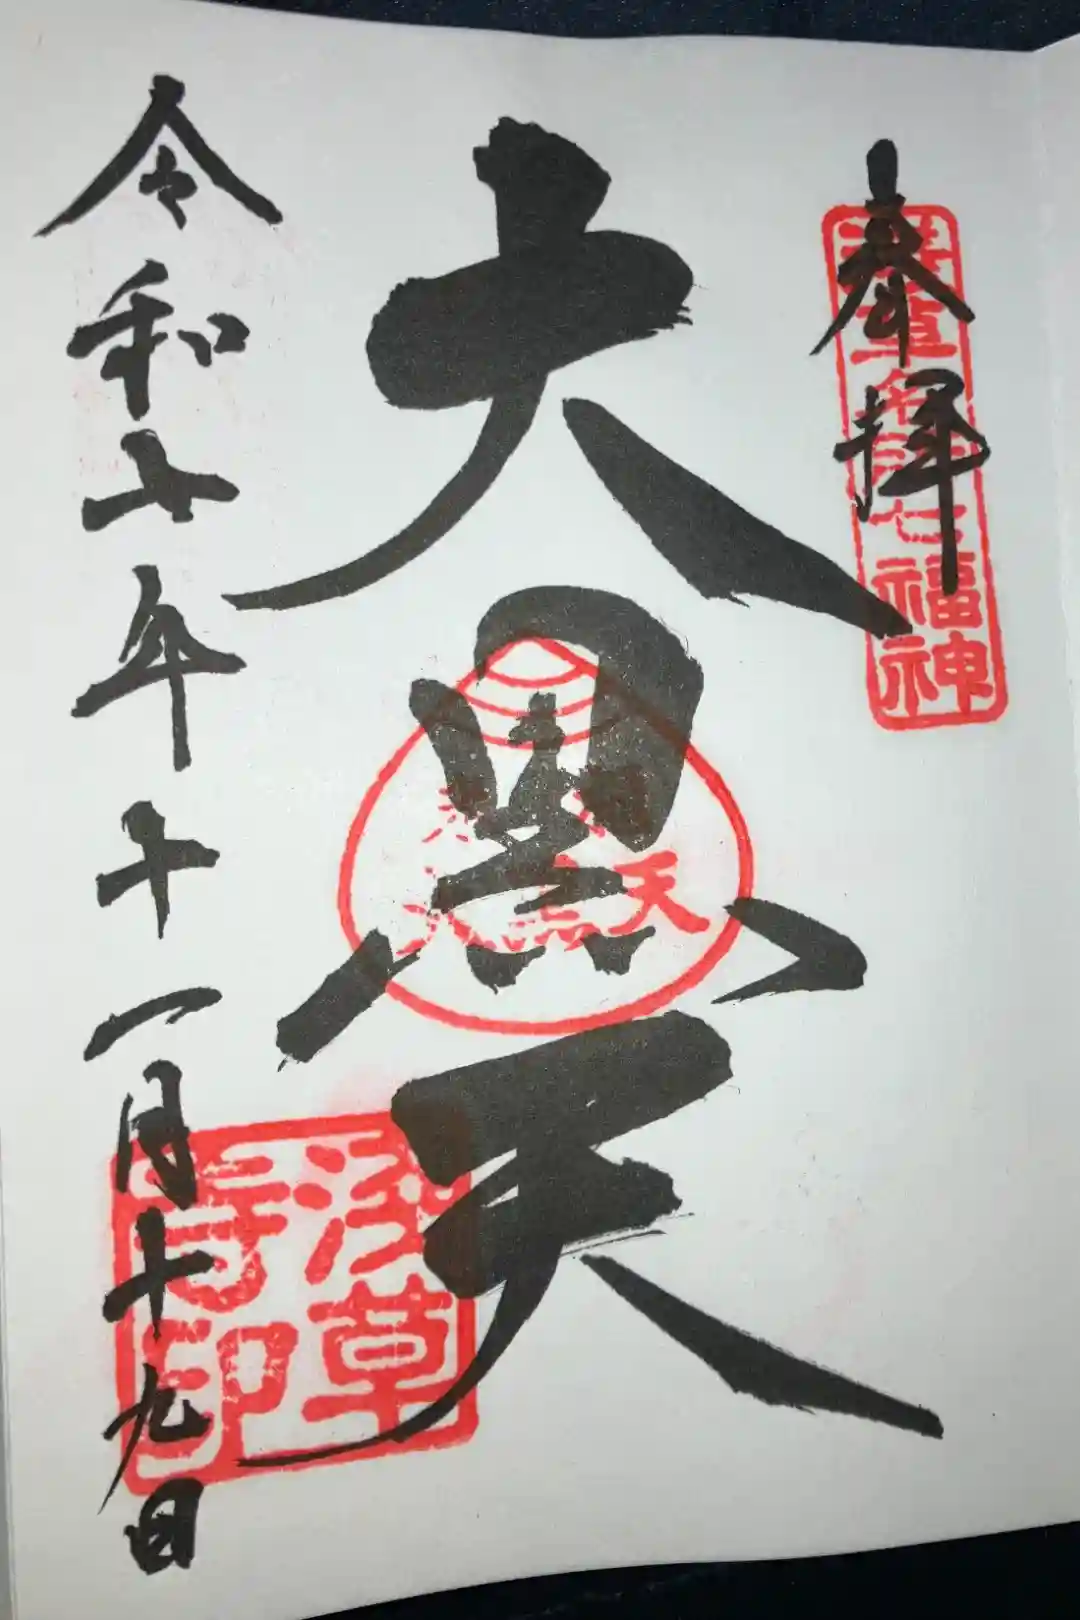 奉拝
浅草名所七福神
大黒天
大黒天
令和六年十一月十九日
浅草
寺印